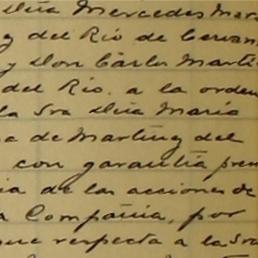 Dña Mercedes Mar
y del Rio de Cervan
y Don Cárlos Marti
del Rio. a la orden
la Sra Dña María
de Martinez del
con garantia pren
ia de las acciones de
a Compañia, por
que respecta a la Sra